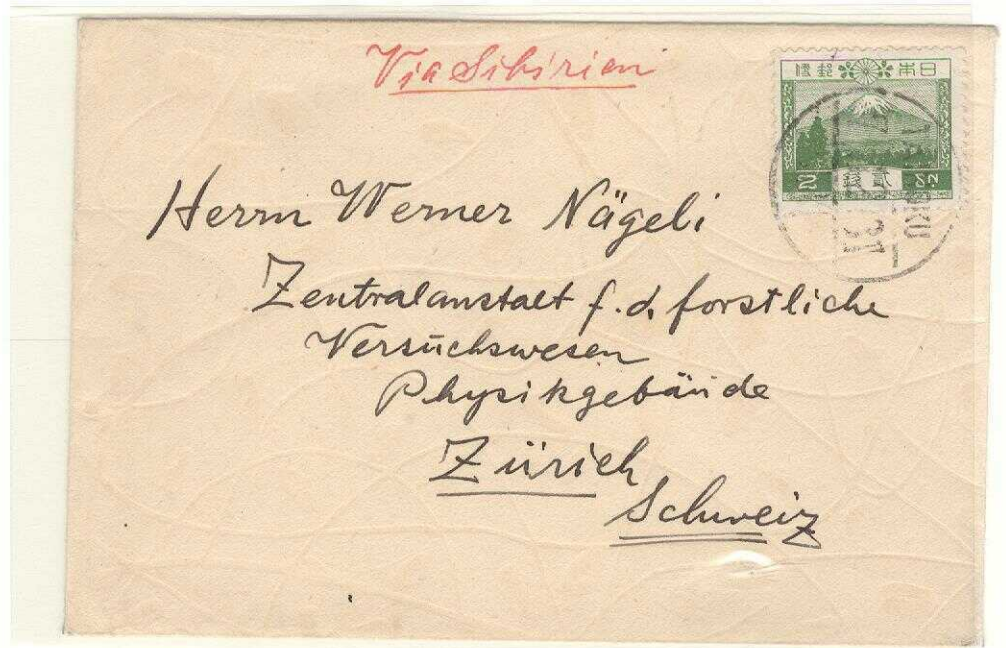 Via Sibirien
日本郵便
2 貳銭 Sn.
Herrn Werner Nägeli
Zentralanstalt f. d. forstliche
Versuchswesen
Physikgebäude
Zürich
Schweiz